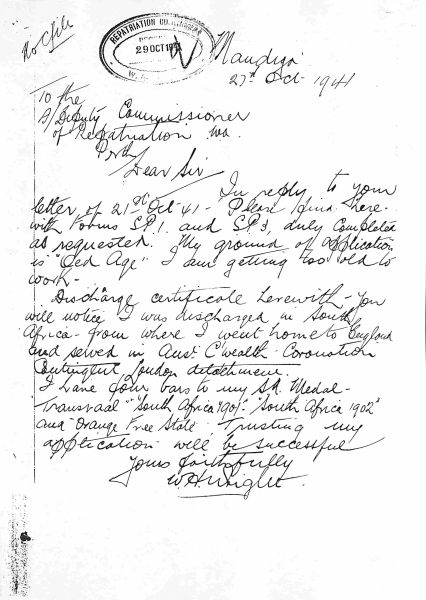 No C file
REPATRIATION COMMISSION
29 OCT 1941
W.
27th Oct 1941
To the
A/Deputy Commissioner
of Repatriation WA.
Perth
Dear Sir
In reply to your
letter of 21st Oct 41 - Please find here-
with Forms S.P.1. and S.P.3, duly Completed
as requested. My ground of application
is "Old Age" I am getting too old to
work -
Discharge certificate herewith - you
will notice I was discharged in South
Africa - from where I went home to England
and served in Aust. C'wealth Coronation
Contingent London detachment.
I have four bars to my S.A. Medal -
Transvaal" "South Africa 1901" "South Africa 1902"
and Orange Free State. Trusting my
application will be successful
Yours faithfully
W H Wright.